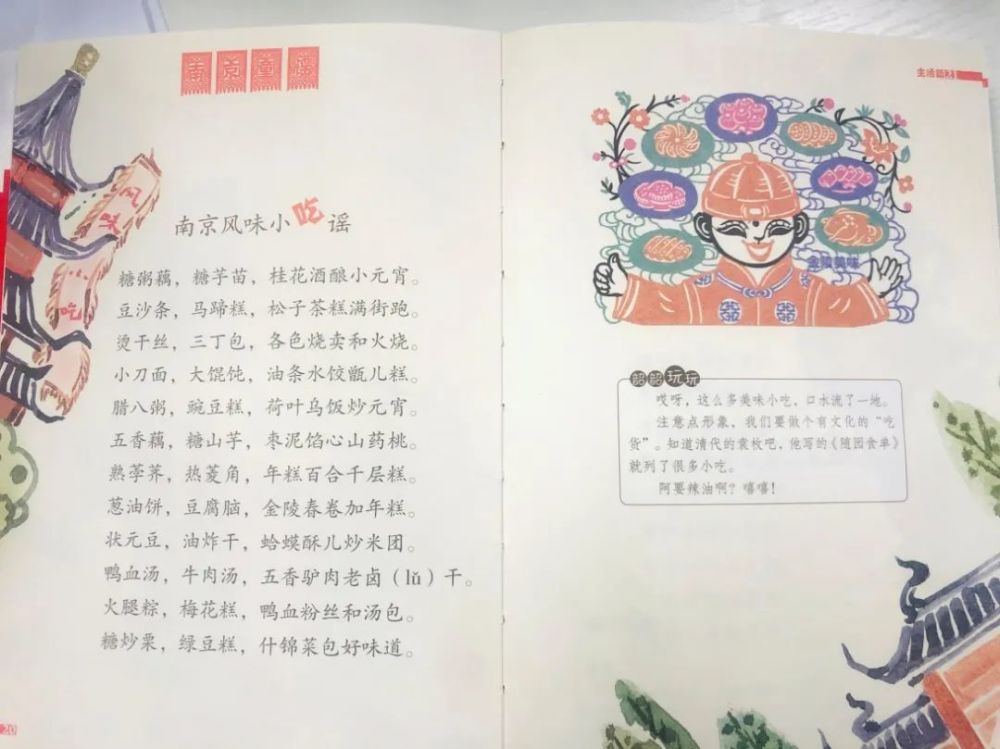 南京童谣
风味
小吃
南京风味小吃谣
糖粥藕，糖芋苗，桂花酒酿小元宵。
豆沙条，马蹄糕，松子茶糕满街跑。
烫干丝，三丁包，各色烧卖和火烧。
小刀面，大馄饨，油条水饺甑儿糕。
腊八粥，豌豆糕，荷叶乌饭炒元宵。
五香藕，糖山芋，枣泥馅心山药桃。
熟荸荠，热菱角，年糕百合千层糕。
葱油饼，豆腐脑，金陵春卷加年糕。
状元豆，油炸干，蛤蟆酥儿炒米团。
鸭血汤，牛肉汤，五香驴肉老卤（lǔ）干。
火腿粽，梅花糕，鸭血粉丝和汤包。
糖炒栗，绿豆糕，什锦菜包好味道。
20
金陵美味
韶韶玩玩
哎呀，这么多美味小吃，口水流了一地。
注意点形象，我们要做个有文化的“吃
货”。知道清代的袁枚吧，他写的《随园食单》
就列了很多小吃。
阿要辣油啊？嘻嘻！